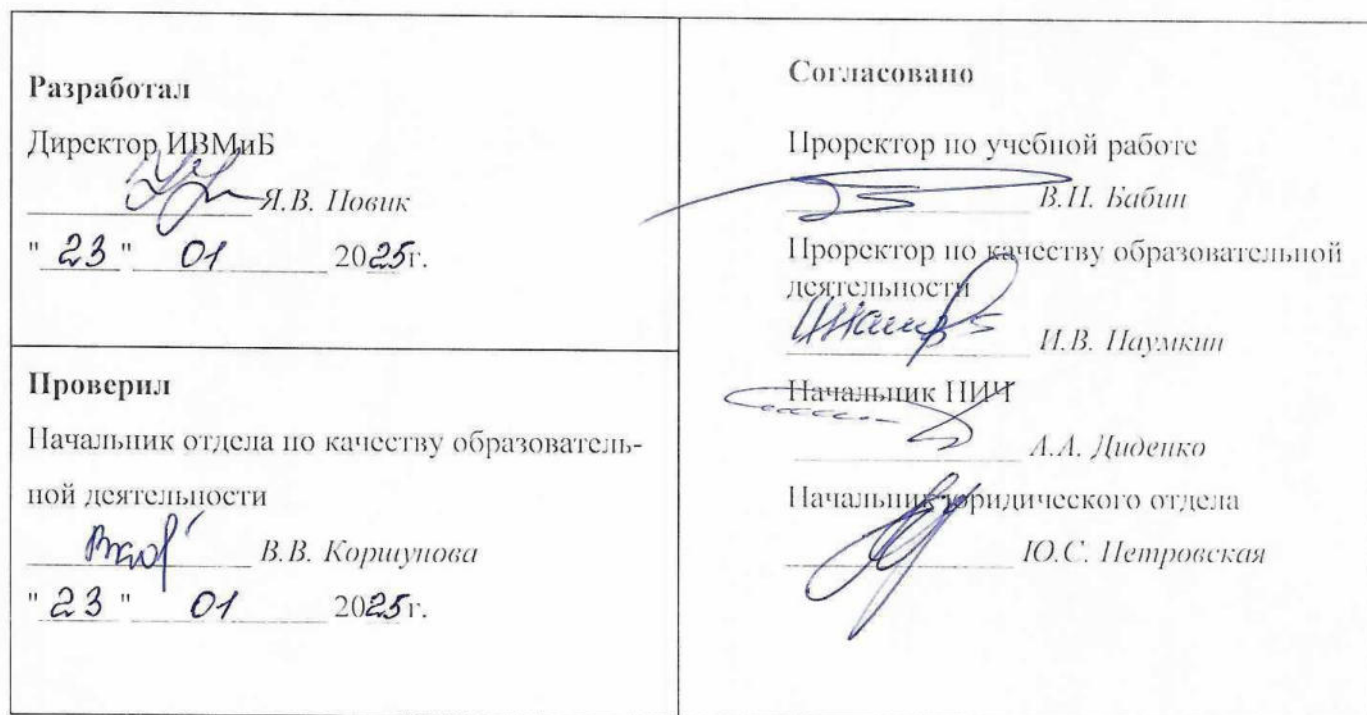 Разработал
Директор ИВМиБ
Я.В. Новик
"23" 01 2025г.
Проверил
Начальник отдела по качеству образователь-
ной деятельности
В.В. Коршунова
"23" 01 2025г.
Согласовано
Проректор по учебной работе
В.Н. Бабин
Проректор по качеству образовательной
деятельности
И.В. Наумкин
Начальник НИЧ
А.А. Диденко
Начальник юридического отдела
Ю.С. Петровская